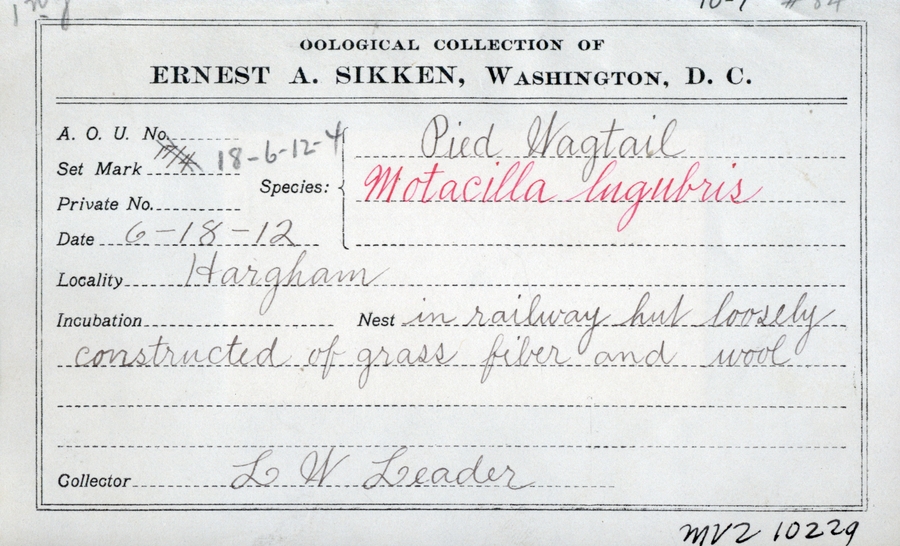 10-7 #84
OOLOGICAL COLLECTION OF
ERNEST A. SIKKEN, WASHINGTON, D. C.
A. O. U. No.
Set Mark 18-6-12-4
Private No.
Date 6-18-12
Species: Pied Wagtail
Motacilla lugubris
Locality Hargham
Incubation Nest in railway hut loosely
constructed of grass fiber and wool
Collector L W Leader
MVZ 10229